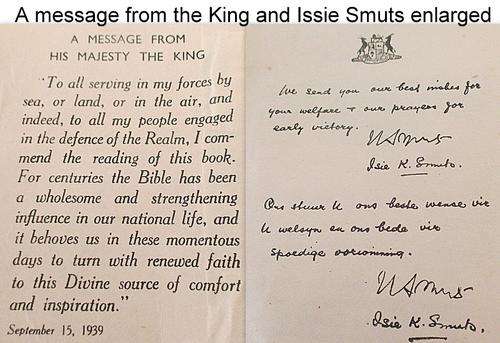 A message from the King and Issie Smuts enlarged
A MESSAGE FROM
HIS MAJESTY THE KING
"To all serving in my forces by
sea, or land, or in the air, and
indeed, to all my people engaged
in the defence of the Realm, I com-
mend the reading of this book.
For centuries the Bible has been
a wholesome and strengthening
influence in our national life, and
it behoves us in these momentous
days to turn with renewed faith
to this Divine source of comfort
and inspiration."
September 15, 1939
We send you our best wishes for
your welfare + our prayers for
early victory.
Isie K. Smuts.
Ons stuur U ons beste wense vir
U welsyn en ons bede vir
spoedige oorwinning.
Isie K. Smuts.